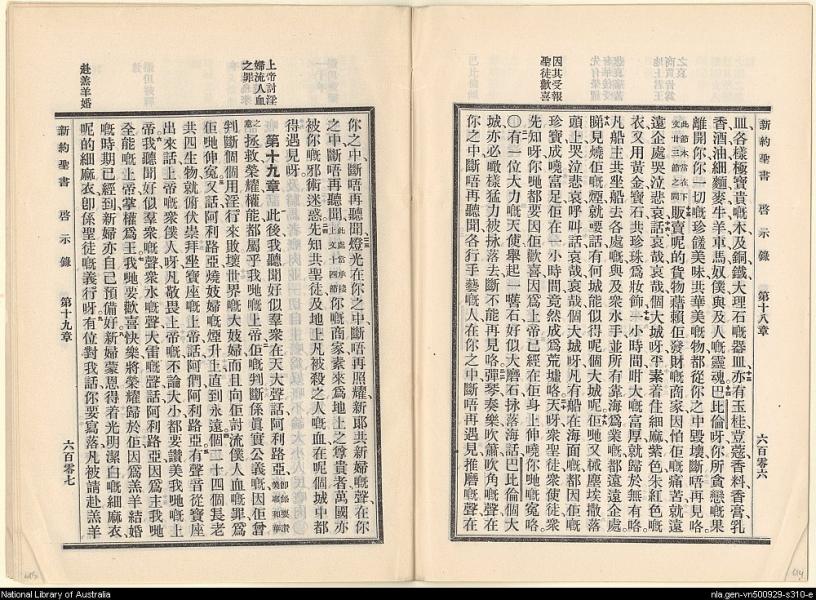 新約聖書 啓示錄 第十八章 六百零六
皿各樣極寶貴嘅木及銅鐵大理石嘅器皿亦有玉桂荳蔻香料香膏乳
香酒油細麵麥牛羊車馬奴僕與及人嘅靈魂巴比倫呀你所貪戀嘅果
離開你你一切嘅珍饈美味共華美嘅物都從你之中毀壞斷唔再見咯
販賣呢的貨物藉賴佢發財嘅商家因怕佢嘅痛苦就遠
遠企處哭泣悲哀話哀哉哀哉嗰個大城呀平素着住細麻紫色朱紅色嘅
衣又用黃金寶石共珍珠爲妝飾一小時間咁大嘅富厚就歸於無有咯
凡船主共坐船去各處嘅與及衆水手並所有靠海爲業嘅都遠遠企處
睇見燒佢嘅煙就嘷話有何城能似得呢個大城呢佢哋又椷塵埃撒落
頭上哭泣悲哀呼叫話哀哉哀哉嗰個大城呀凡有船在海面嘅都因佢嘅
珍寶成嘵富足佢在一小時間竟然成爲荒墟咯天呀衆聖徒衆使徒衆
先知呀你哋都要因佢歡喜因爲上帝已經在佢身上伸嘵你哋嘅寃咯
〇有一位大力嘅天使舉起一嚿石好似大磨石掷落海話巴比倫個大
城亦必噉樣猛力被掷落去斷不能再見咯彈琴奏樂吹簫吹角嘅聲在
你之中斷唔再聽聞各行手藝嘅人在你之中斷唔再遇見推磨嘅聲在
之哀
商賈皆爲
地上君王
因其受報
聖徒歡喜
上帝討淫
婦流人血
之罪
赴羔羊婚
你之中斷唔再聽聞燈光在你之中斷唔再照耀新郎共新婦嘅聲在你
之中斷唔再聽聞此處當承接上文十四節你嘅商家素來爲地上之尊貴者萬國亦
被你嘅邪術迷惑先知共聖徒及地上凡被殺之人嘅血在呢個城中都
得遇見呀
第十九章 此後我聽聞好似羣衆在天大聲話阿利路亞卽係要讚美耶和華
拯救榮耀權能都屬乎我哋嘅上帝佢嘅判斷係眞實公義嘅因佢曾
判斷個個用淫行來敗壞世界嘅大妓婦而且向佢討流僕人血嘅罪爲
佢哋伸寃又話阿利路亞燒妓婦嘅煙升上直到永遠個二十四個長老
共四生物就俯伏崇拜坐寶座嘅上帝話阿們阿利路亞有聲音從寶座
出來話上帝嘅衆僕人呀凡敬畏上帝嘅不論大小都要讚美我哋嘅上
帝我聽聞好似羣衆嘅聲衆水嘅聲大雷嘅聲話阿利路亞因爲主我哋
全能嘅上帝掌權爲王我哋要歡喜快樂將榮耀歸於佢因爲羔羊結婚
嘅時期已經到新婦亦自己預備好新婦蒙恩得着光明潔白嘅細麻衣
呢的細麻衣卽係聖徒嘅義行呀有位對我話你要寫落凡被請赴羔羊
新約聖書 啓示錄 第十九章 六百零七
National Library of Australia
nla.gen-vn500929-s310-e